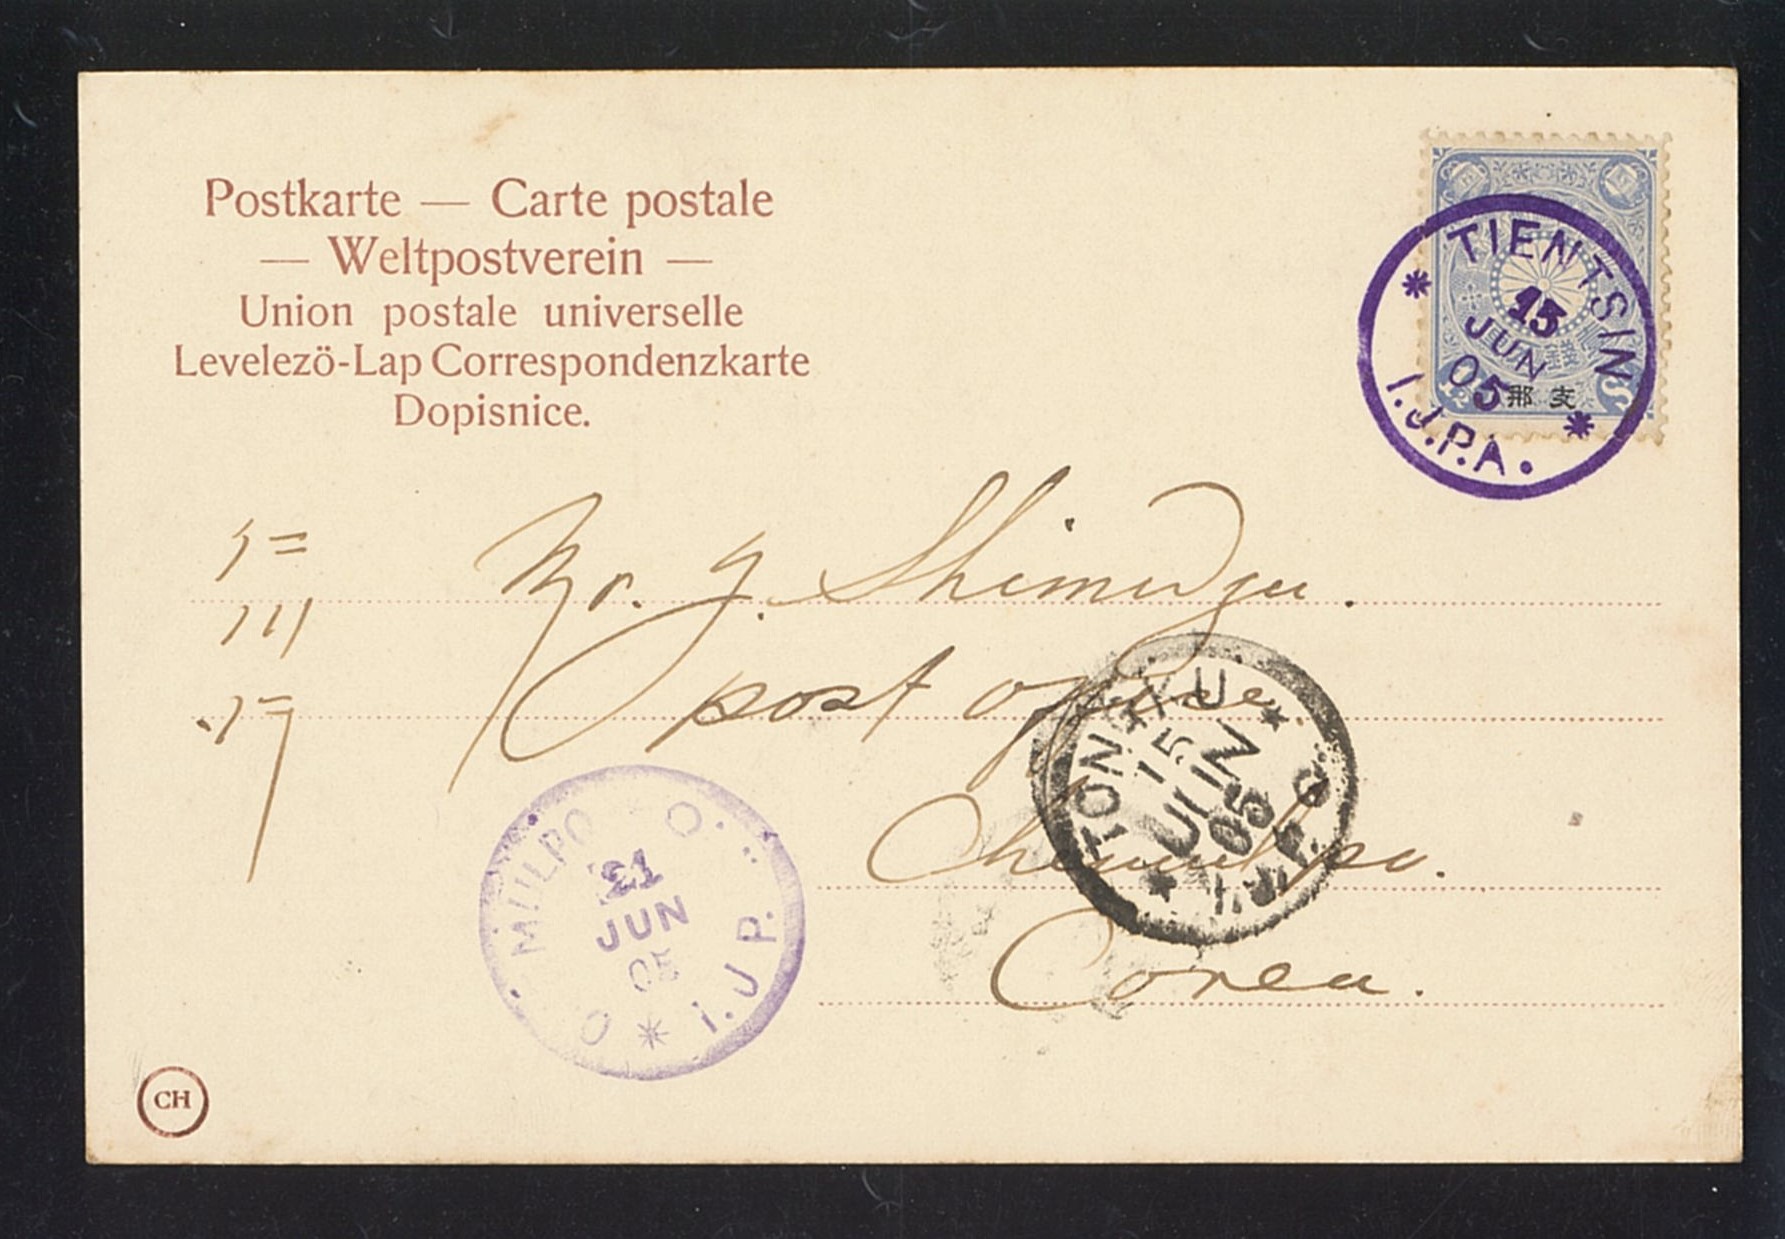 Postkarte — Carte postale
— Weltpostverein —
Union postale universelle
Levelezö-Lap Correspondenzkarte
Dopisnice.
TIENTSIN
15
JUN
05
I.J.P.A.
支那
Mr. J. Shimidzu.
post office
Chemulpo.
Corea.
TONGKU
15
JUN
05
I.J.P.O
21
JUN
05
I.J.P.
CH